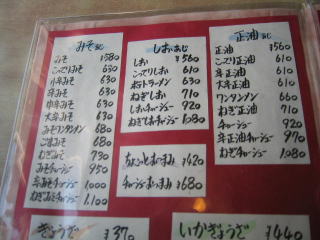 みそ味
みそ ¥580
こってりみそ 630
小辛みそ 630
辛みそ 630
中辛みそ 630
大辛みそ 630
みそワンタン 680
ごまみそ 680
ねぎみそ 730
みそチャーシュー 950
辛みそチャーシュー 1,000
ねぎみそチャーシュー 1,100
しおあじ
しお ¥560
こってりしお 610
梅しおラーメン 630
ねぎしお 710
しおチャーシュー 920
ねぎしおチャーシュー 1,080
ちょっとおつまみ ¥420
チャーシューおつまみ ¥680
正油あじ
正油 ¥560
こってり正油 610
辛正油 610
大辛正油 610
ワンタンメン 660
ねぎ正油 710
チャーシュー 920
辛正油チャーシュー 970
ねぎチャーシュー 1,080
ぎょうざ ¥370
いかぎょうざ ¥440